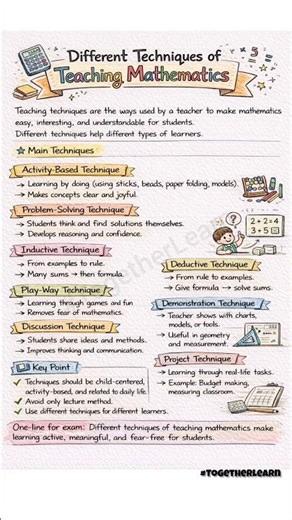 Different Techniques of
Teaching Mathematics
Teaching techniques are the ways used by a teacher to make mathematics
easy, interesting, and understandable for students.
Different techniques help different types of learners.
Main Techniques
Activity-Based Technique
→ Learning by doing (using sticks, beads, paper folding, models).
→ Makes concepts clear and joyful.
Problem-Solving Technique
→ Students think and find solutions themselves.
→ Develops reasoning and confidence.
2+2=4
3+5
?
Inductive Technique
→ From examples to rule.
→ Many sums → then formula.
Deductive Technique
→ From rule to examples.
→ Give formula → solve sums.
Play-Way Technique
→ Learning through games and fun
→ Removes fear of mathematics.
Demonstration Technique
→ Teacher shows with charts,
models, or tools.
→ Useful in geometry
and measurement.
Discussion Technique
→ Students share ideas and methods.
→ Improves thinking and communication.
Project Technique
→ Learning through real-life tasks.
→ Example: Budget making,
measuring classroom.
Key Point
✓ Techniques should be child-centered,
activity-based, and related to daily life.
✓ Avoid only lecture method.
✓ Use different techniques for different learners.
One-line for exam: Different techniques of teaching mathematics make
learning active, meaningful, and fear-free for students.
#TOGETHERLEARN